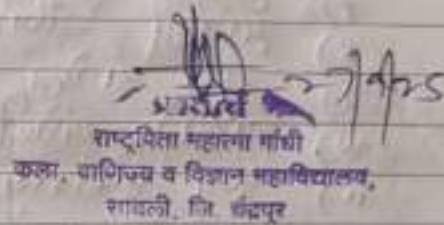 राष्ट्रपिता महात्मा गांधी
कला, वाणिज्य व विज्ञान महाविद्यालय,
सावली, जि. चंद्रपूर